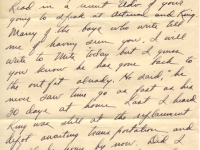 Read in a recent Adv. of your
going to speak at
Marcy of the boys who write tell
me of having seen you. I will
write to Mitz today but I guess
you know he has gone back to
the outfit already. He said, "he
never saw time go as fast as his
30 days at home. Last I heard
King was still at the replacement
depot awaiting transportation and
be home by now. Did I